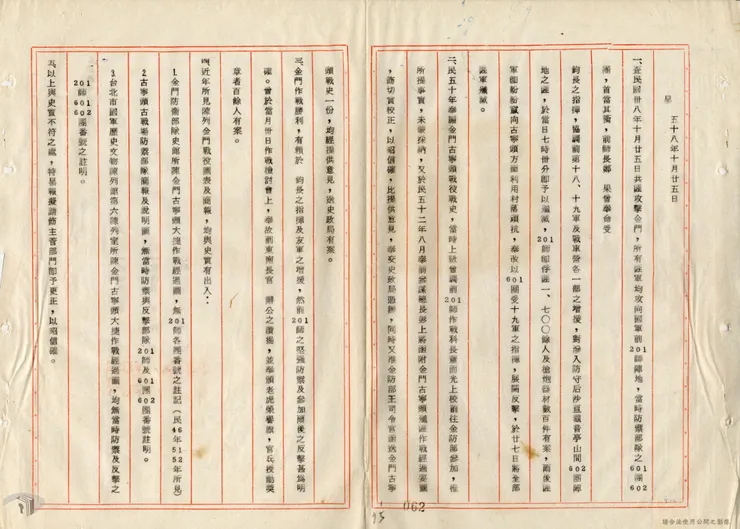 呈　五十八年十月廿五日
一、查民國卅八年十月廿五日共匪攻擊金門，所有匪軍均攻向國軍前201師陣地，當時防禦部隊之601團602
團，首當其衝，前師長鄭　果曾奉命受
鈞長之指揮，協調前第十八、十九軍及戰車營各一部之增援，對滲入防守后沙至觀音亭山間602團陣
地之匪，於當日七時卅分即予以殲滅，201師即俘匪一、七〇〇餘人及槍炮器材數百件有案，而後匪
軍即紛紛竄向古寧頭方面利用村落頑抗，奉改以601團受十九軍之指揮，展開反擊，於廿七日將全部
匪軍殲滅。
二、民五十年舉編金門古寧頭戰役戰史，當時上級曾調前201師作戰科長蕭而光上校前往金防部參加，惟
所提事實，未蒙採納，又於民五十二年八月奉前參謀總長彭上將函附金門古寧頭殲匪作戰經過要圖
，飭切實校正，以昭信確，比提供意見，奉交史政局過辦，同時又准金防部王司令官函送金門古寧
頭戰史一份，均經提供意見，送史政局有案。
三、金門作戰勝利，有賴於　鈞長之指揮及友軍之增援，然前201師之堅強防禦及參加爾後之反擊甚為明
確。曾於當月卅日作戰檢討會上，奉故前東南長官　辭公之讚揚，並奉頒老虎榮譽旗，官兵授勳獎
章者百餘人有案。
四、近年所見陳列金門戰役圖表及簡報，均與史實有出入：
1.金門防衛部隊史館所陳金門古寧頭大捷作戰經過圖，無201師各團番號之註記（民46年51年52年所見）
2.古寧頭古戰場防禦部隊簡報及說明圖，無當時防禦與反擊部隊201師及601團602團番號註明。
3.台北市國軍歷史文物陳列館第六陳列室所陳金門古寧頭大捷作戰經過圖，均無當時防禦及反擊之
201師601團602團番號之註明。
五、以上與史實不符之處，特呈報擬請飭主管部門即予更正，以昭信確。
062